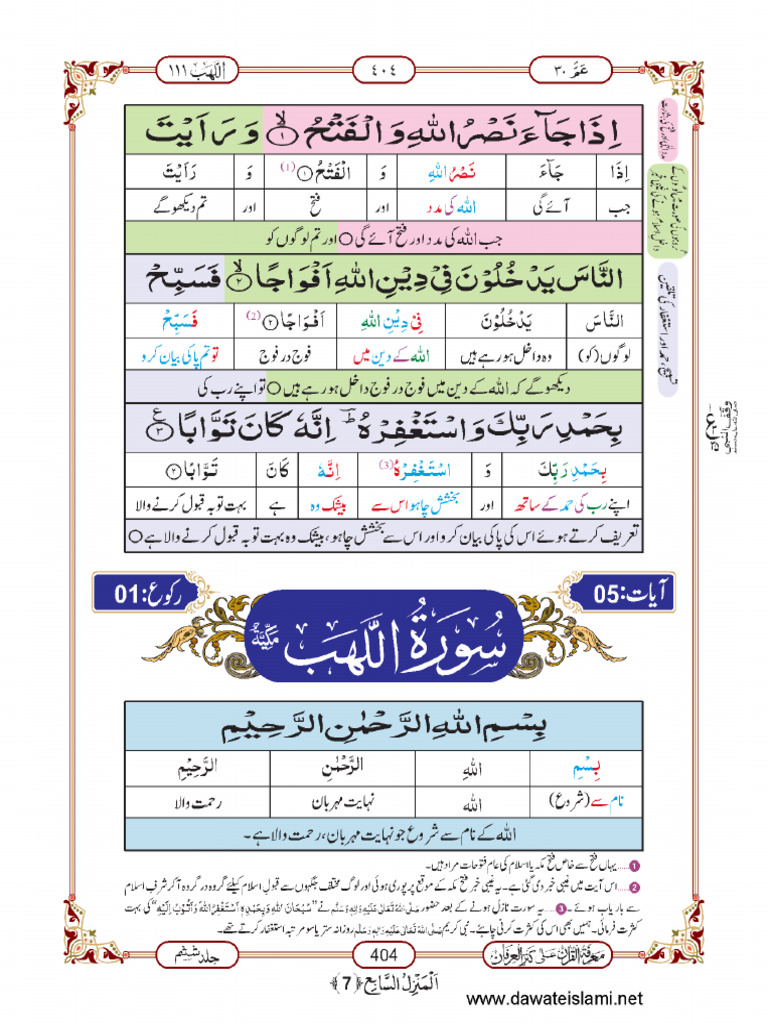 عَمَّ ٣٠
٤٠٤
اَللَّهَب ١١١
اِذَا جَآءَ نَصْرُ اللّٰهِ وَ الْفَتْحُۙ۝۱ وَ رَاَیْتَ
اِذَا جَآءَ نَصْرُ اللّٰهِ وَ الْفَتْحُ۝۱ (1) وَ رَاَیْتَ
جب آئے گی اللہ کی مدد اور فتح اور تم دیکھو گے
جب اللہ کی مدد اور فتح آئے گی ○ اور تم لوگوں کو
النَّاسَ یَدْخُلُوْنَ فِیْ دِیْنِ اللّٰهِ اَفْوَاجًاۙ۝۲ فَسَبِّحْ
النَّاسَ یَدْخُلُوْنَ فِیْ دِیْنِ اللّٰهِ اَفْوَاجًا۝۲ (2) فَسَبِّحْ
لوگوں (کو) وہ داخل ہو رہے ہیں اللہ کے دین میں فوج در فوج تو تم پاکی بیان کرو
دیکھو گے کہ اللہ کے دین میں فوج در فوج داخل ہو رہے ہیں ○ تو اپنے رب کی
بِحَمْدِ رَبِّكَ وَ اسْتَغْفِرْهُ ؔؕ اِنَّهٗ كَانَ تَوَّابًا۠۝۳
بِحَمْدِ رَبِّكَ وَ اسْتَغْفِرْهُ (3) اِنَّهٗ كَانَ تَوَّابًا۝۲
اپنے رب کی حمد کے ساتھ اور بخشش چاہو اس سے بیشک وہ ہے بہت توبہ قبول کرنے والا
تعریف کرتے ہوئے اس کی پاکی بیان کرو اور اس سے بخشش چاہو، بیشک وہ بہت توبہ قبول کرنے والا ہے ○
تسبیح، حمد اور استغفار کی تلقین
آیات: 05
رکوع: 01
سُوْرَةُ اللَّهَب مَكِّيَّةٌ
بِسْمِ اللّٰهِ الرَّحْمٰنِ الرَّحِیْمِ
بِسْمِ اللّٰهِ الرَّحْمٰنِ الرَّحِیْمِ
نام سے (شروع) اللہ نہایت مہربان رحمت والا
اللہ کے نام سے شروع جو نہایت مہربان، رحمت والا ہے۔
1 ..... یہاں فتح سے خاص فتح مکہ یا اسلام کی عام فتوحات مراد ہیں۔
2 ..... اس آیت میں غیبی خبر دی گئی ہے۔ یہ غیبی خبر فتح مکہ کے موقع پر پوری ہوئی اور لوگ مختلف جگہوں سے قبولِ اسلام کیلئے گروہ در گروہ آ کر شرفِ اسلام
سے باریاب ہوئے۔ 3 ..... یہ سورت نازل ہونے کے بعد حضور صَلَّی اللہُ تَعَالٰی عَلَیْہِ وَاٰلِہٖ وَسَلَّمَ نے "سُبْحَانَ اللّٰهِ وَبِحَمْدِهٖ اَسْتَغْفِرُ اللّٰهَ وَاَتُوْبُ اِلَیْهِ" کی بہت
کثرت فرمائی۔ ہمیں بھی اس کی کثرت کرنی چاہئے۔ نبی کریم صَلَّی اللہُ تَعَالٰی عَلَیْہِ وَاٰلِہٖ وَسَلَّمَ روزانہ ستر یا سو مرتبہ استغفار کرتے تھے۔
مَعْرِفَةُ الْقُرْآن عَلٰى كَنْزُ الْعِرْفَان
404
جلد ششم
اَلْمَنْزِلُ السَّابِع ﴿7﴾
www.dawateislami.net